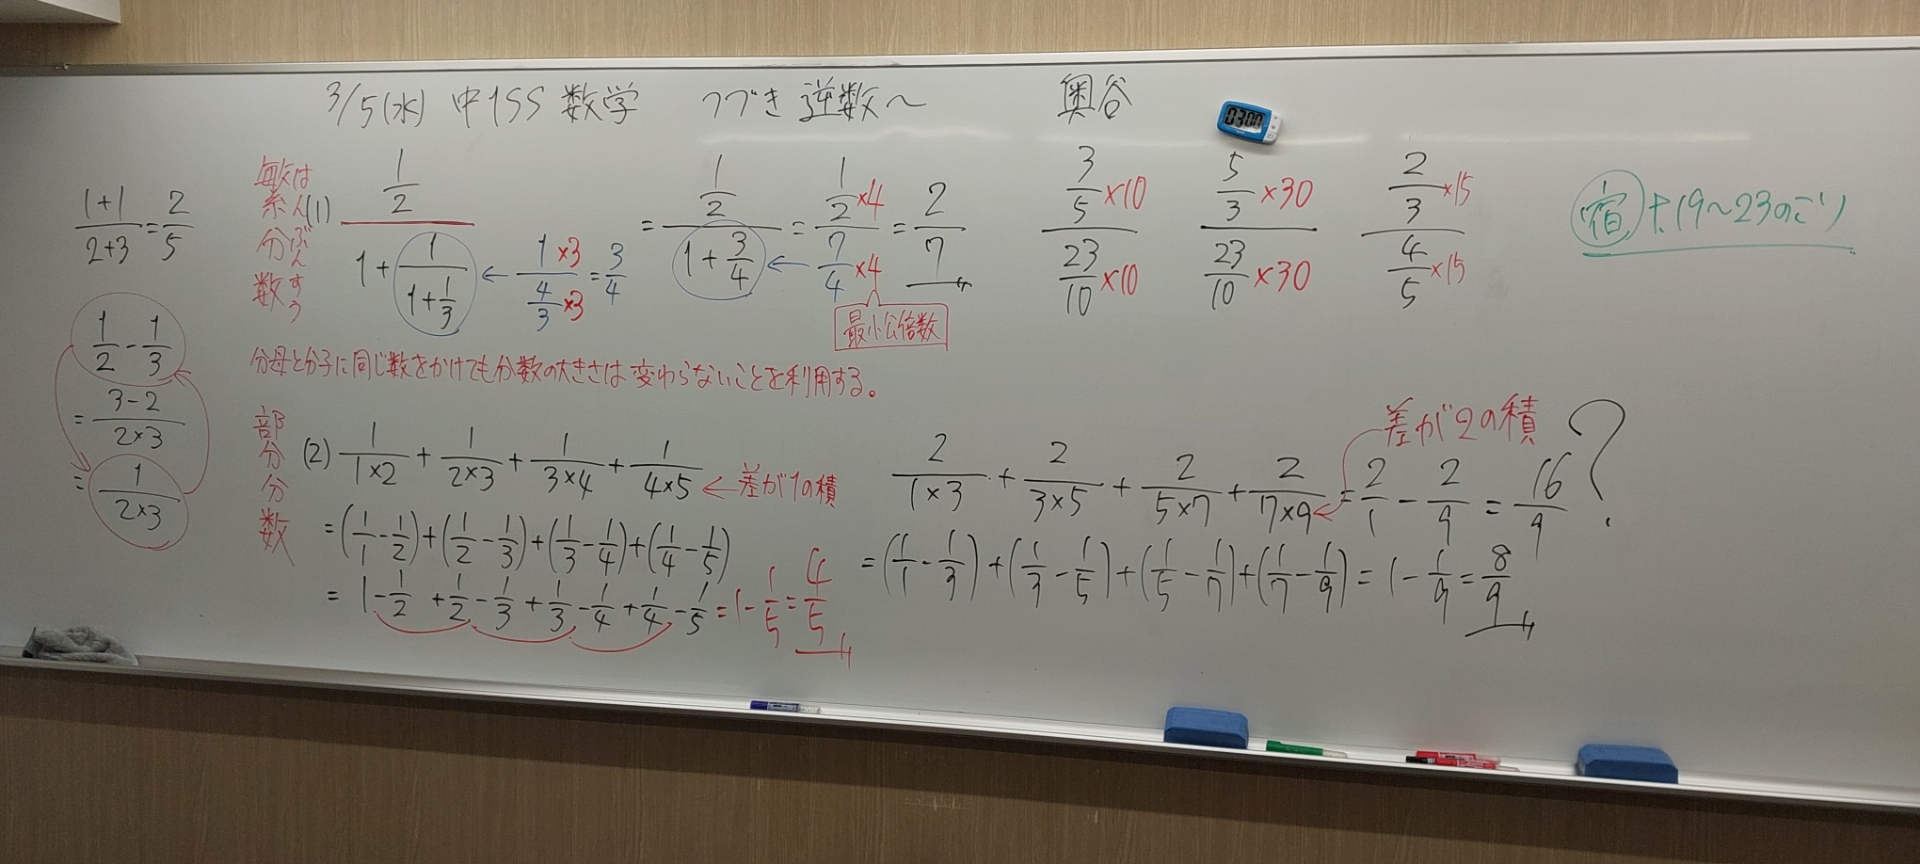 3/5(水) 中1SS 数学 つづき 逆数〜 奥谷
0300
1+1/2+3 = 2/5
繁分数
はんぶんすう
(1) (1/2)/(1+1/(1+1/3)) ← (1×3)/(4/3×3) = 3/4
= (1/2)/(1+3/4) ← = (1/2×4)/(7/4×4) = 2/7
最小公倍数
(3/5×10)/(23/10×10)
(5/3×30)/(23/10×30)
(2/3×15)/(4/5×15)
宿 t.19〜23のこり
分母と分子に同じ数をかけても分数の大きさは変わらないことを利用する。
1/2 - 1/3
= (3-2)/(2×3)
= 1/(2×3)
部分分数
(2) 1/(1×2) + 1/(2×3) + 1/(3×4) + 1/(4×5) ← 差が1の積
= (1/1 - 1/2) + (1/2 - 1/3) + (1/3 - 1/4) + (1/4 - 1/5)
= 1 - 1/2 + 1/2 - 1/3 + 1/3 - 1/4 + 1/4 - 1/5 = 1 - 1/5 = 4/5
差が2の積
2/(1×3) + 2/(3×5) + 2/(5×7) + 2/(7×9) = 2/1 - 2/9 = 16/9 ?
= (1/1 - 1/3) + (1/3 - 1/5) + (1/5 - 1/7) + (1/7 - 1/9) = 1 - 1/9 = 8/9